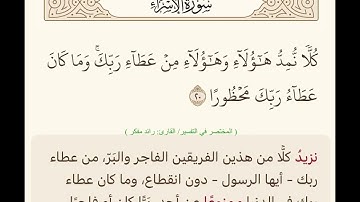 سُورَةُ الإِسْرَاءِ
كُلًّا نُّمِدُّ هَـٰٓؤُلَآءِ وَهَـٰٓؤُلَآءِ مِنْ عَطَآءِ رَبِّكَ ۚ وَمَا كَانَ
عَطَآءُ رَبِّكَ مَحْظُورًا ٢٠
( المختصر في التفسير/ القارئ: رائد مفكر )
نزيدُ كلًّا من هذين الفريقين الفاجر والبَرّ، من عطاء
ربك - أيها الرسول - دون انقطاع، وما كان عطاء
ربك في الدنيا ممنوعًا عن أحد، بَرًّا كان أو فاجرًا